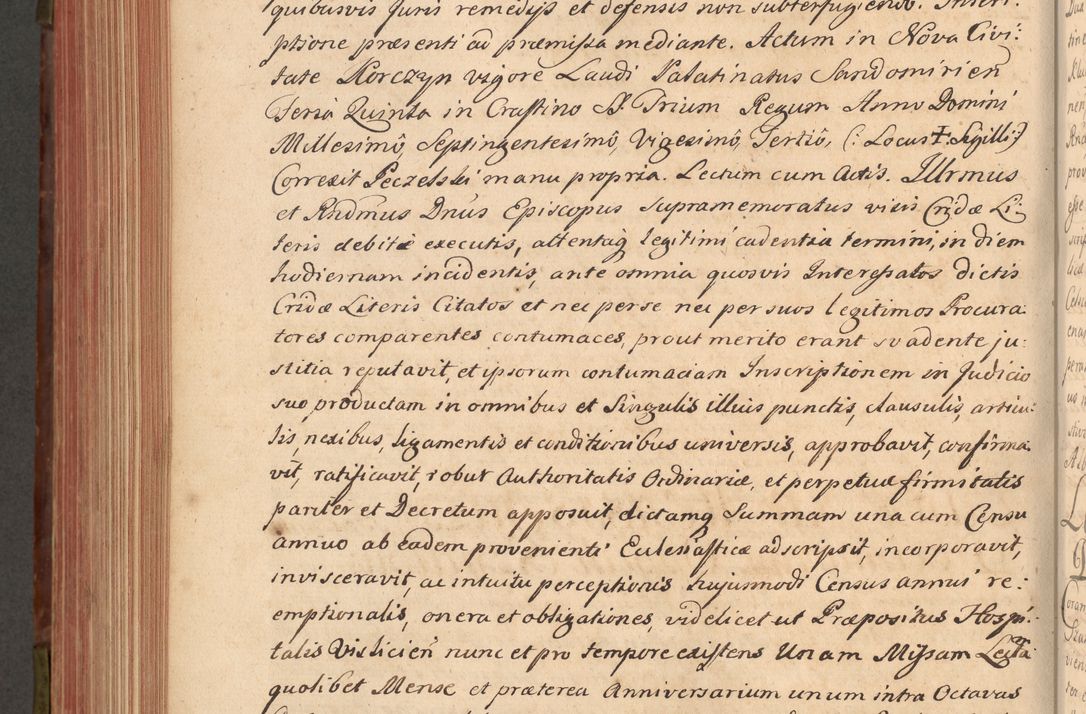 quibusvis Juris remedijs et defensis non subterfugiendo. Inscri:
ptione præsenti ad præmissa mediante. Actum in Nova Civi:
tate Korczyn vigore Laudi Palatinatus Sandomirień
Feria Quinta in Crastino SS. Trium Regum Anno Domini
Millesimô, Septingentesimô, Vigesimô, Tertiô, (: Locus ✝. Sigilli :)
Correxit Peczelski manu propria. Lectum cum Actis. Illrmus
et Rndmus Dnus Episcopus supramemoratus visis Cridæ Li:
teris debitæ executis, attentaq legitimi cadentia termini, in diem
hodiernam incidentis, ante omnia quosvis Interessatos dictis
Cridæ Literis Citatos et nec per se nec per suos legitimos Procura:
tores comparentes contumaces, prout merito erant svadente ju:
stitia reputavit, et ipsorum contumaciam Inscriptionem in Judicio
suo, productam in omnibus et Singulis illius punctis, clausulis, articu:
lis, nexibus, ligamentis et conditionibus universis, approbavit, confirma
vit, ratificavit, robur Authoritatis Ordinariæ, et perpetuæ firmitatis
pariter et Decretum apposuit, dictamq Summam una cum Censu
annuo ab eadem provenienti Eclesiasticæ adscripsit, incorporavit,
invisceravit, ac intuitu perceptionis hujusmodi Census annui re:
emptionalis, onera et obligationes, videlicet ut Præpositus Hospi:
talis Vislicień nunc et pro tempore existens Unam Missam Lectā
quolibet Mense et præterea Anniversarium unum intra Octavas